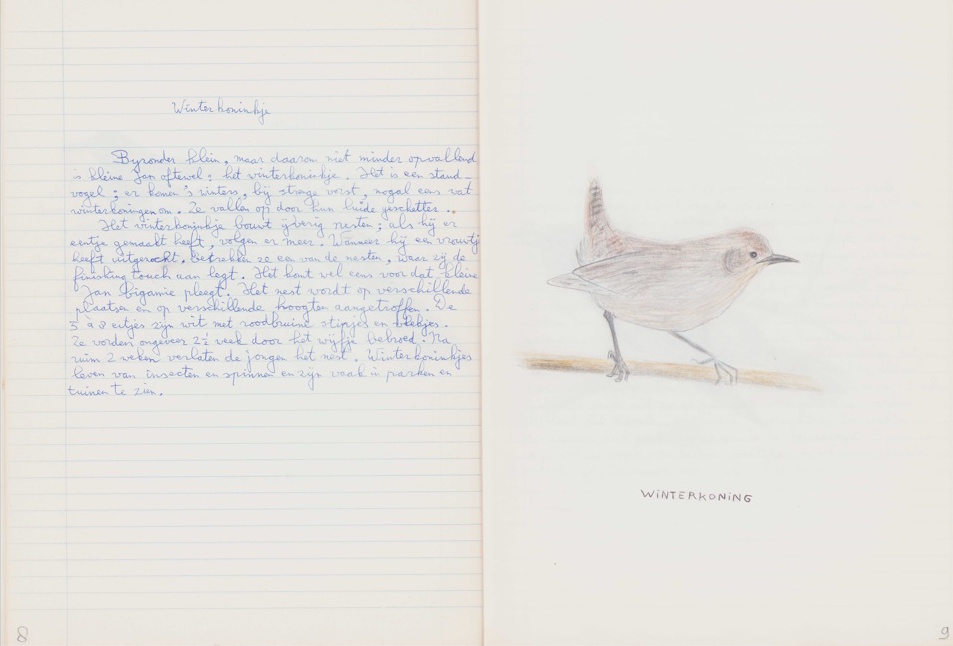 Winterkoninkje
Byzonder klein, maar daarom niet minder opvallend
is kleine Jan oftewel: het winterkoninkje. Het is een stand-
vogel; er komen 's winters, bij strenge vorst, nogal eens wat
winterkoningen om. Ze vallen op door hun luide geschetter..
Het winterkoninkje bouwt ijverig nesten; als hij er
eentje gemaakt heeft, volgen er meer. Wanneer hij een vrouwtje
heeft uitgezocht, betrekken ze een van de nesten, waar zij de
finishing touch aan legt. Het komt wel eens voor dat kleine
Jan bigamie pleegt. Het nest wordt op verschillende
plaatsen en op verschillende hoogten aangetroffen. De
5 à 8 eitjes zijn wit met roodbruine stipjes en vlekjes.
Ze worden ongeveer 2½ week door het wijfje bebroed. Na
ruim 2 weken verlaten de jongen het nest. Winterkoninkjes
leven van insecten en spinnen en zijn vaak in parken en
tuinen te zien.
8
WINTERKONING
9